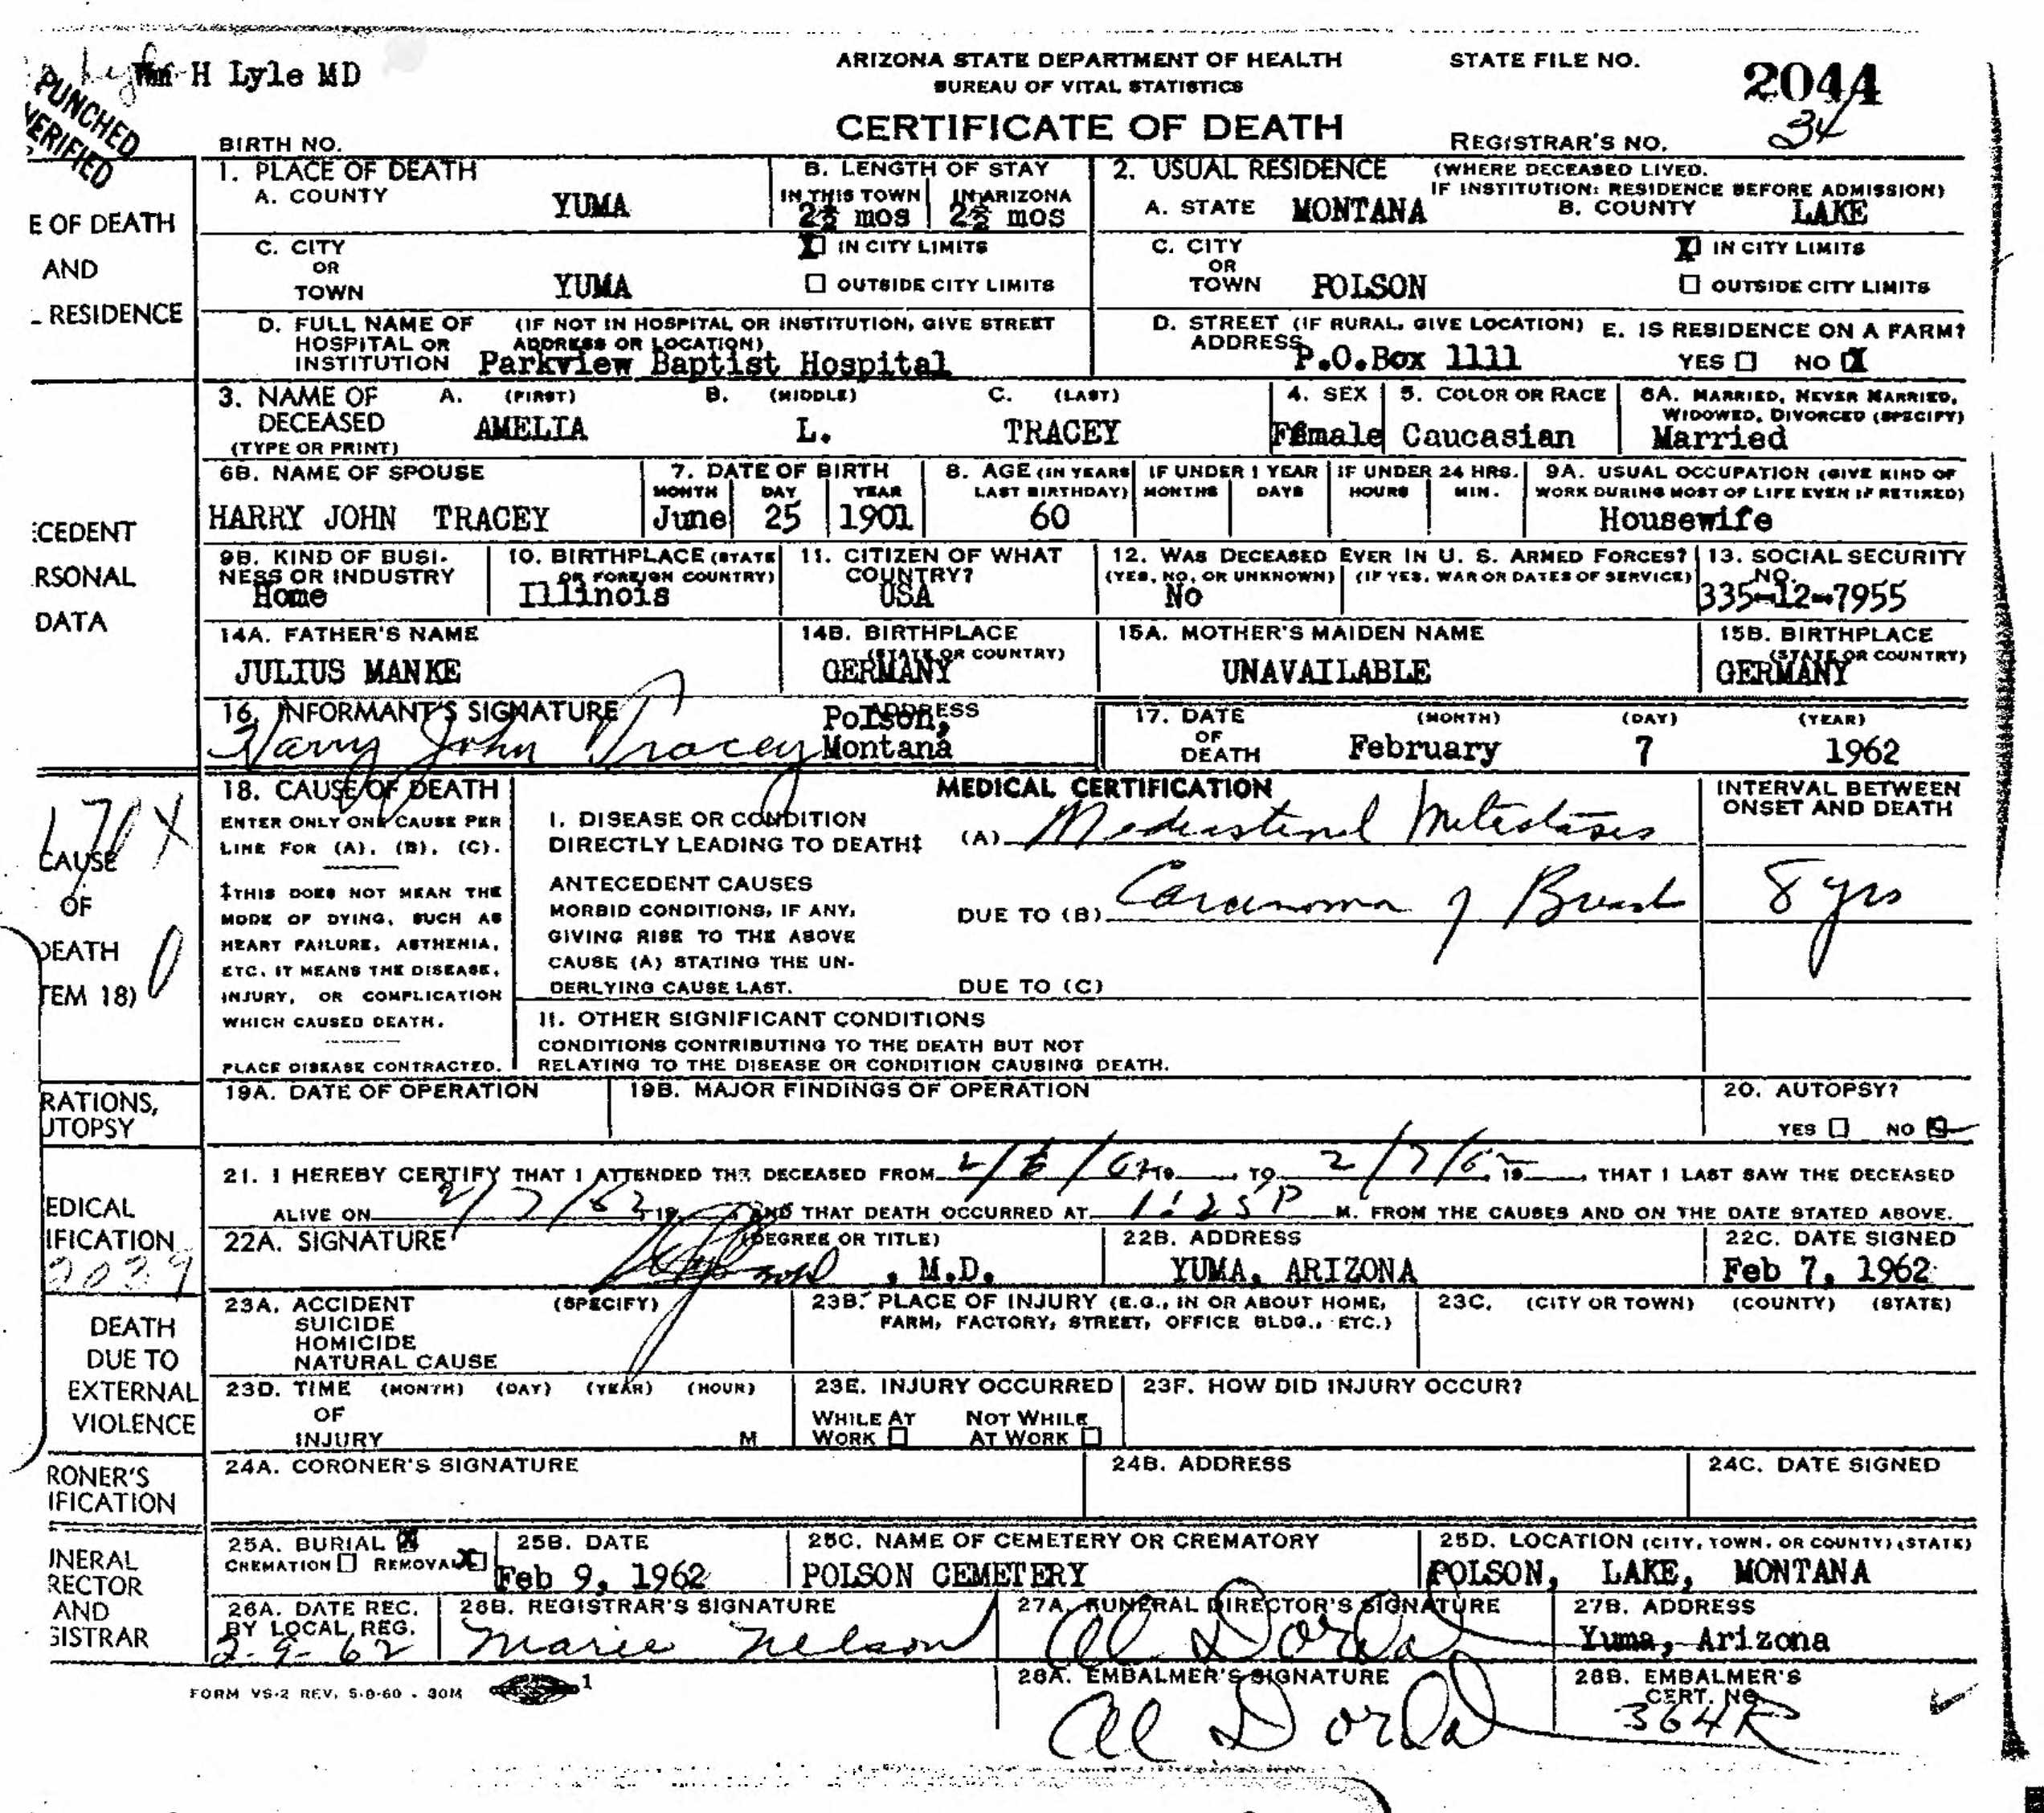 H Lyle MD
PUNCHED
VERIFIED
ARIZONA STATE DEPARTMENT OF HEALTH
BUREAU OF VITAL STATISTICS
CERTIFICATE OF DEATH
STATE FILE NO. 2044
REGISTRAR'S NO. 34
BIRTH NO.
E OF DEATH
AND
RESIDENCE
1. PLACE OF DEATH
A. COUNTY YUMA
B. LENGTH OF STAY
IN THIS TOWN 2½ mos
IN ARIZONA 2½ mos
2. USUAL RESIDENCE (WHERE DECEASED LIVED.
IF INSTITUTION: RESIDENCE BEFORE ADMISSION)
A. STATE MONTANA
B. COUNTY LAKE
C. CITY OR TOWN YUMA
X IN CITY LIMITS
OUTSIDE CITY LIMITS
C. CITY OR TOWN POLSON
X IN CITY LIMITS
OUTSIDE CITY LIMITS
D. FULL NAME OF HOSPITAL OR INSTITUTION (IF NOT IN HOSPITAL OR INSTITUTION, GIVE STREET ADDRESS OR LOCATION)
Parkview Baptist Hospital
D. STREET ADDRESS (IF RURAL, GIVE LOCATION)
P.O.Box 1111
E. IS RESIDENCE ON A FARM?
YES NO X
CEDENT
RSONAL
DATA
3. NAME OF DECEASED (TYPE OR PRINT)
A. (FIRST) AMELIA
B. (MIDDLE) L.
C. (LAST) TRACEY
4. SEX Female
5. COLOR OR RACE Caucasian
6A. MARRIED, NEVER MARRIED, WIDOWED, DIVORCED (SPECIFY)
Married
6B. NAME OF SPOUSE
HARRY JOHN TRACEY
7. DATE OF BIRTH
MONTH June DAY 25 YEAR 1901
8. AGE (IN YEARS LAST BIRTHDAY) 60
IF UNDER 1 YEAR MONTHS DAYS
IF UNDER 24 HRS. HOURS MIN.
9A. USUAL OCCUPATION (GIVE KIND OF WORK DURING MOST OF LIFE EVEN IF RETIRED)
Housewife
9B. KIND OF BUSINESS OR INDUSTRY
Home
10. BIRTHPLACE (STATE OR FOREIGN COUNTRY)
Illinois
11. CITIZEN OF WHAT COUNTRY?
USA
12. WAS DECEASED EVER IN U. S. ARMED FORCES?
(YES, NO, OR UNKNOWN) (IF YES, WAR OR DATES OF SERVICE)
No
13. SOCIAL SECURITY NO.
335-12-7955
14A. FATHER'S NAME
JULIUS MANKE
14B. BIRTHPLACE (STATE OR COUNTRY)
GERMANY
15A. MOTHER'S MAIDEN NAME
UNAVAILABLE
15B. BIRTHPLACE (STATE OR COUNTRY)
GERMANY
16. INFORMANT'S SIGNATURE
Harry John Tracey
ADDRESS
Polson, Montana
17. DATE OF DEATH
(MONTH) (DAY) (YEAR)
February 7 1962
CAUSE
OF
DEATH
TEM 18)
18. CAUSE OF DEATH
ENTER ONLY ONE CAUSE PER
LINE FOR (A), (B), (C).
‡THIS DOES NOT MEAN THE
MODE OF DYING, SUCH AS
HEART FAILURE, ASTHENIA,
ETC. IT MEANS THE DISEASE,
INJURY, OR COMPLICATION
WHICH CAUSED DEATH.
PLACE DISEASE CONTRACTED.
MEDICAL CERTIFICATION
INTERVAL BETWEEN ONSET AND DEATH
I. DISEASE OR CONDITION
DIRECTLY LEADING TO DEATH‡ (A) Mediastinal Metastases
ANTECEDENT CAUSES
MORBID CONDITIONS, IF ANY,
GIVING RISE TO THE ABOVE
CAUSE (A) STATING THE UN-
DERLYING CAUSE LAST.
DUE TO (B) Carcinoma of Breast 8 yrs
DUE TO (C)
II. OTHER SIGNIFICANT CONDITIONS
CONDITIONS CONTRIBUTING TO THE DEATH BUT NOT
RELATING TO THE DISEASE OR CONDITION CAUSING DEATH.
RATIONS,
UTOPSY
19A. DATE OF OPERATION
19B. MAJOR FINDINGS OF OPERATION
20. AUTOPSY?
YES NO
EDICAL
IFICATION
21. I HEREBY CERTIFY THAT I ATTENDED THE DECEASED FROM 2/6/62 19 , TO 2/7/62 19 , THAT I LAST SAW THE DECEASED
ALIVE ON 2/7/62 19 AND THAT DEATH OCCURRED AT 1:25 P M. FROM THE CAUSES AND ON THE DATE STATED ABOVE.
22A. SIGNATURE (DEGREE OR TITLE)
, M.D.
22B. ADDRESS
YUMA, ARIZONA
22C. DATE SIGNED
Feb 7, 1962
DEATH
DUE TO
EXTERNAL
VIOLENCE
23A. ACCIDENT (SPECIFY)
SUICIDE
HOMICIDE
NATURAL CAUSE
23B. PLACE OF INJURY (E.G., IN OR ABOUT HOME,
FARM, FACTORY, STREET, OFFICE BLDG., ETC.)
23C. (CITY OR TOWN) (COUNTY) (STATE)
23D. TIME (MONTH) (DAY) (YEAR) (HOUR)
OF
INJURY M
23E. INJURY OCCURRED
WHILE AT WORK NOT WHILE AT WORK
23F. HOW DID INJURY OCCUR?
RONER'S
IFICATION
24A. CORONER'S SIGNATURE
24B. ADDRESS
24C. DATE SIGNED
UNERAL
RECTOR
AND
GISTRAR
25A. BURIAL X
CREMATION REMOVAL X
25B. DATE
Feb 9, 1962
25C. NAME OF CEMETERY OR CREMATORY
POLSON CEMETERY
25D. LOCATION (CITY, TOWN, OR COUNTY) (STATE)
POLSON, LAKE, MONTANA
26A. DATE REC. BY LOCAL REG.
2-9-62
26B. REGISTRAR'S SIGNATURE
Marie Nelson
27A. FUNERAL DIRECTOR'S SIGNATURE
27B. ADDRESS
Yuma, Arizona
28A. EMBALMER'S SIGNATURE
28B. EMBALMER'S CERT. NO.
FORM VS-2 REV. 5-8-60 - 30M 1